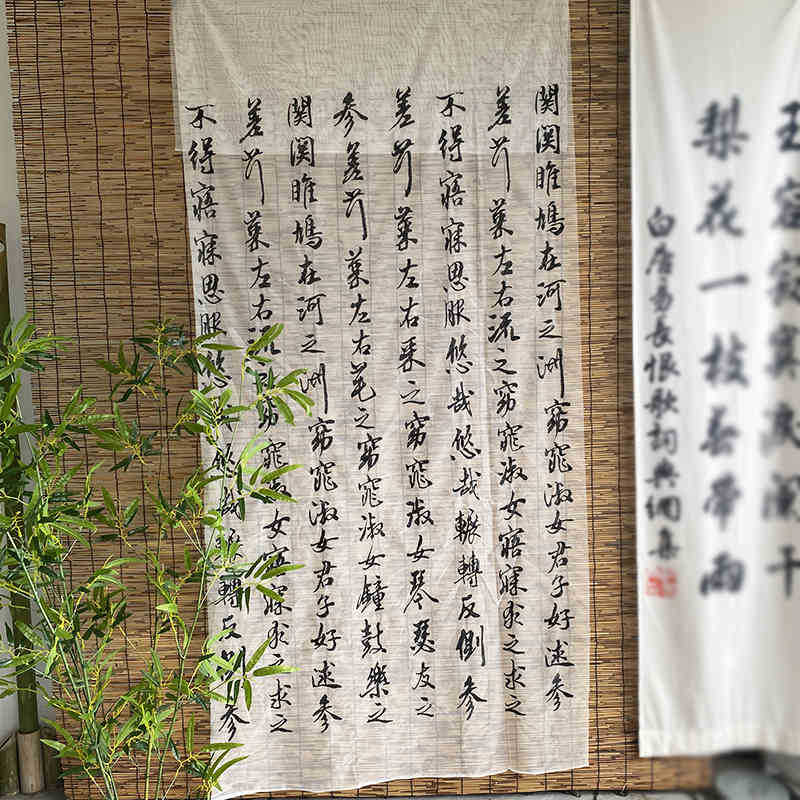 玉容寂寞淚闌干
梨花一枝春帶雨
白居易長恨歌詞
関関雎鳩在河之洲窈窕淑女君子好逑参
差荇菜左右流之窈窕淑女寤寐求之求之
不得寤寐思服悠哉悠哉輾轉反側参
差荇菜左右采之窈窕淑女琴瑟友之
参差荇菜左右芼之窈窕淑女鐘鼓樂之
関関雎鳩在河之洲窈窕淑女君子好逑参
差荇菜左右流之窈窕淑女寤寐求之求之
不得寤寐思服悠哉悠哉輾轉反側参